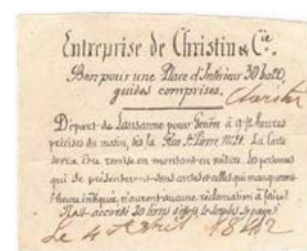 Entreprise de Christin & Cie.
Bon pour une Place d'Intérieur 30 batz,
guides comprises.
Départ de Lausanne pour Genève à 9 heures
précises du matin, dès la Rue St. Pierre No. 21. La Carte
devra être remise en montant en voiture, les personnes
qui se présenteront sans cartes et celles qui manqueront
l'heure indiquée, n'auront aucune réclamation à faire.
Il est accordé 20 livres d'effets, le surplus se paye.
Le 4 1842